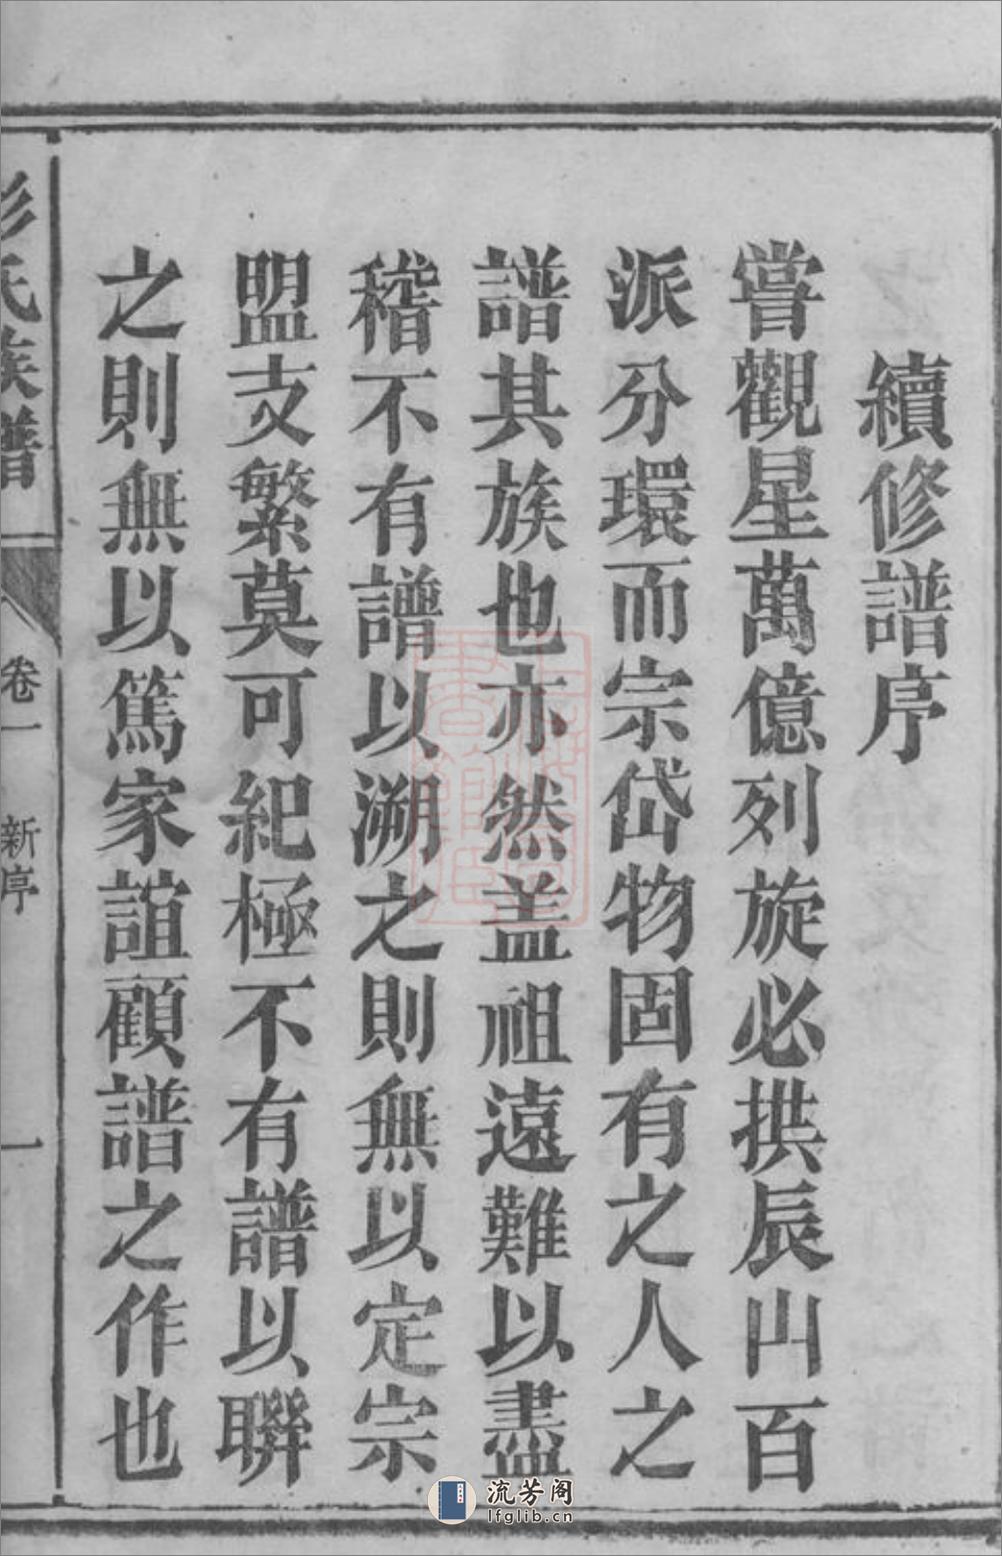 續修譜序
嘗觀星萬億列旋必拱辰山百
派分環而宗岱物固有之人之
譜其族也亦然盖祖遠難以盡
稽不有譜以溯之則無以定宗
盟支繁莫可紀極不有譜以聯
之則無以篤家誼顧譜之作也
彭氏族譜
卷一
新序
一
流芳阁
lfglib.cn